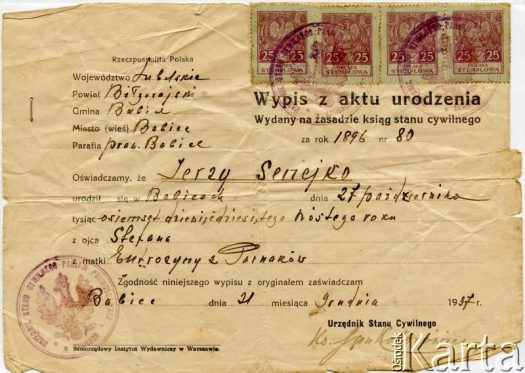 Rzeczpospolita Polska
Województwo Lubelskie
Powiat Biłgorajski
Gmina Babice
Miasto (wieś) Babice
Parafia praw. Babice
25 25 25 25 25
OPŁATA STEMPLOWA
Wypis z aktu urodzenia
Wydany na zasadzie ksiąg stanu cywilnego
za rok 1896 nr 80
Oświadczamy, że Jerzy Seniejko
urodził się w Babicach dnia 27 października
tysiąc osiemset dziewięćdziesiątego szóstego roku
z ojca Stefana
z matki Eufrozyny z Parnaków
Zgodność niniejszego wypisu z oryginałem zaświadczam
Babice dnia 21 miesiąca grudnia 1937 r.
Urzędnik Stanu Cywilnego
Ks.
Samorządowy Instytut Wydawniczy w Warszawie.
Ośrodek
Karta